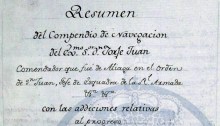 Resumen
del Compendio de Navegacion
del Exmo. Sr. Dn. Jorje Juan
Comendador que fué de Aliaga en el Orden
de Sn. Juan, Jefe de Esquadra de la Rl. Armada
con las addiciones relativas
al progreso